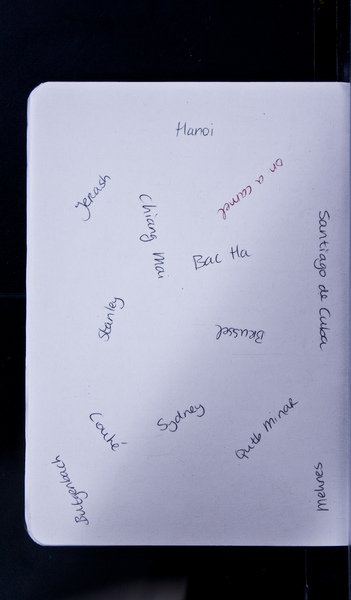 Hanoi
on a camel
Jerash
Chiang Mai
Santiago de Cuba
Bac Ha
Stanley
Brussel
Sydney
Qutb Minar
Couhé
Butgenbach
Melaines